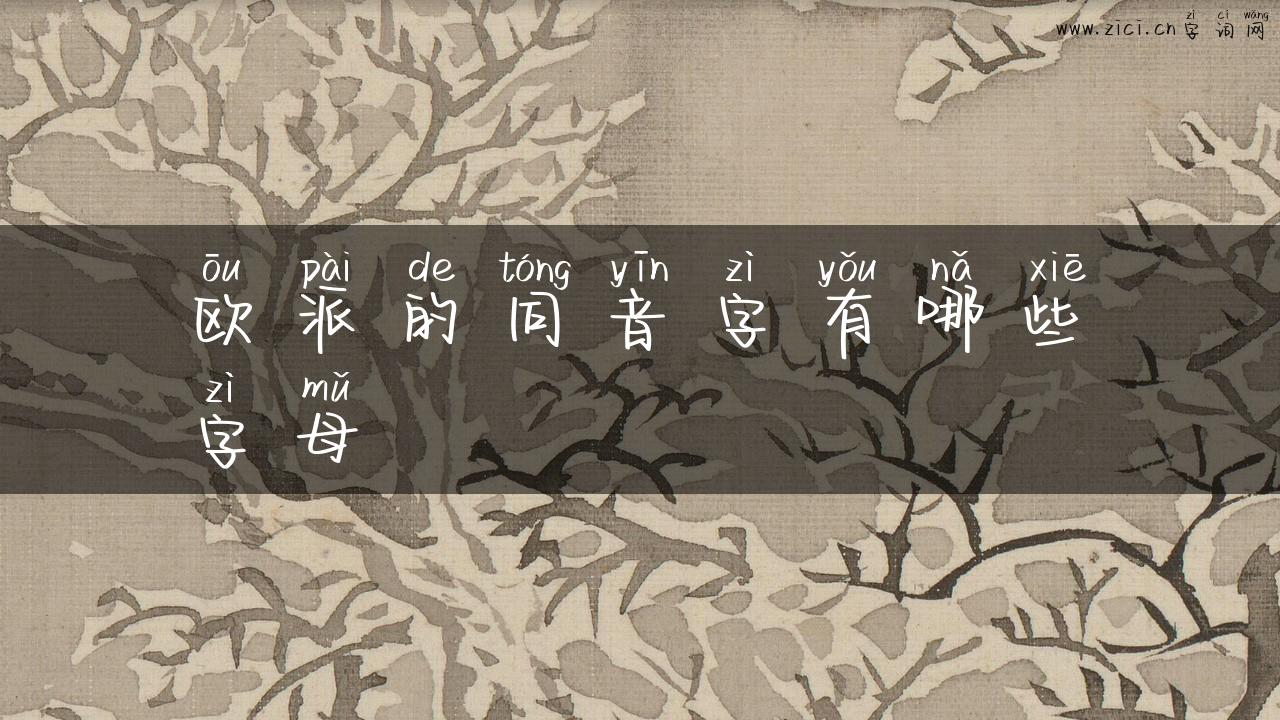 zì cí wǎng
www.zici.cn 字词网
ōu pài de tóng yīn zì yǒu nǎ xiē
欧派的同音字有哪些
zì mǔ
字母